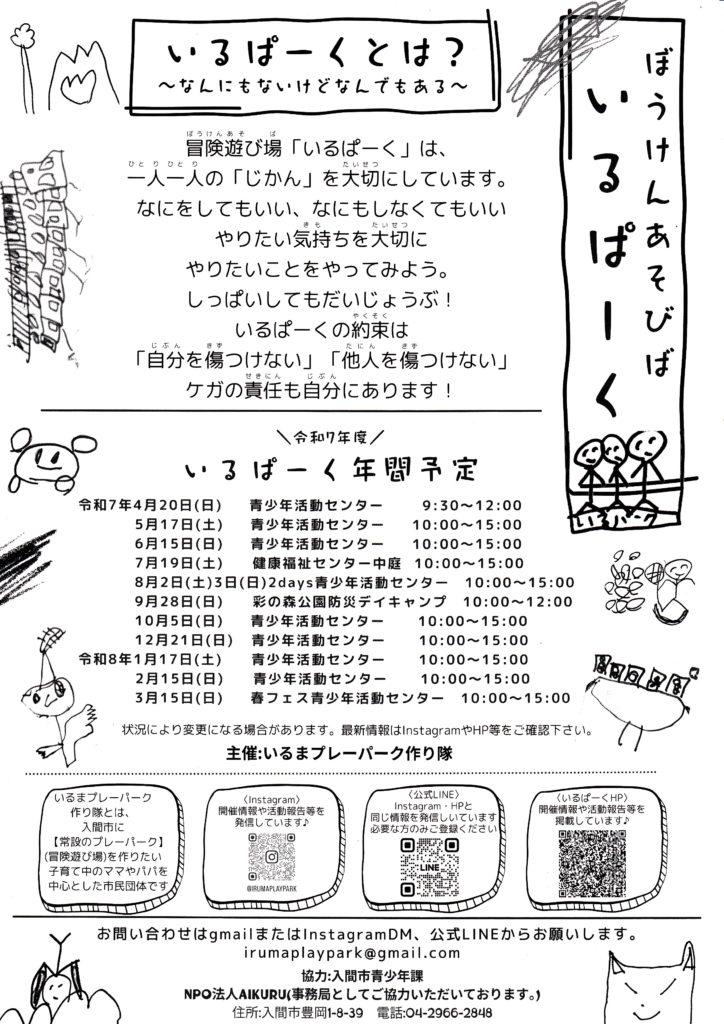 いるぱーくとは？
～なんにもないけどなんでもある～
ぼうけんあそびば
いるぱーく
冒険遊び場「いるぱーく」は、
一人一人の「じかん」を大切にしています。
なにをしてもいい、なにもしなくてもいい
やりたい気持ちを大切に
やりたいことをやってみよう。
しっぱいしてもだいじょうぶ！
いるぱーくの約束は
「自分を傷つけない」「他人を傷つけない」
ケガの責任も自分にあります！
いるパーク
＼令和7年度／
いるぱーく年間予定
令和7年4月20日(日) 青少年活動センター 9:30～12:00
5月17日(土) 青少年活動センター 10:00～15:00
6月15日(日) 青少年活動センター 10:00～15:00
7月19日(土) 健康福祉センター中庭 10:00～15:00
8月2日(土)3日(日)2days青少年活動センター 10:00～15:00
9月28日(日) 彩の森公園防災デイキャンプ 10:00～12:00
10月5日(日) 青少年活動センター 10:00～15:00
12月21日(日) 青少年活動センター 10:00～15:00
令和8年1月17日(土) 青少年活動センター 10:00～15:00
2月15日(日) 青少年活動センター 10:00～15:00
3月15日(日) 春フェス青少年活動センター 10:00～15:00
状況により変更になる場合があります。最新情報はInstagramやHP等をご確認下さい。
主催:いるまプレーパーク作り隊
いるまプレーパーク
作り隊とは、
入間市に
【常設のプレーパーク】
(冒険遊び場)を作りたい
子育て中のママやパパを
中心とした市民団体です
〈Instagram〉
開催情報や活動報告等を
発信しています♪
@IRUMAPLAYPARK
〈公式LINE〉
Instagram・HPと
同じ情報を発信しいています
必要な方のみご登録ください
LINE
〈いるぱーくHP〉
開催情報や活動報告等を
掲載しています♪
お問い合わせはgmailまたはInstagramDM、公式LINEからお願いします。
irumaplaypark@gmail.com
協力:入間市青少年課
NPO法人AIKURU(事務局としてご協力いただいております。)
住所:入間市豊岡1-8-39 電話:04-2966-2848